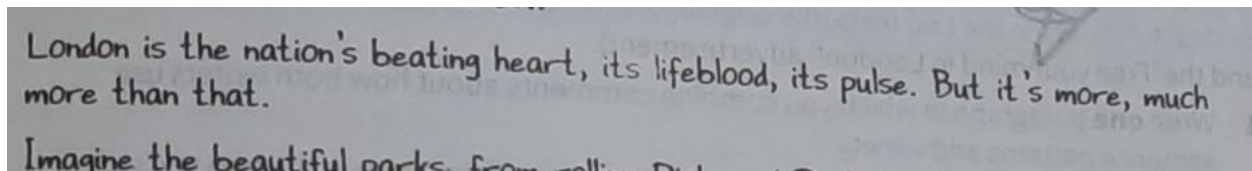 London is the nation's beating heart, its lifeblood, its pulse. But it's more, much
more than that.
Imagine the beautiful parks, from